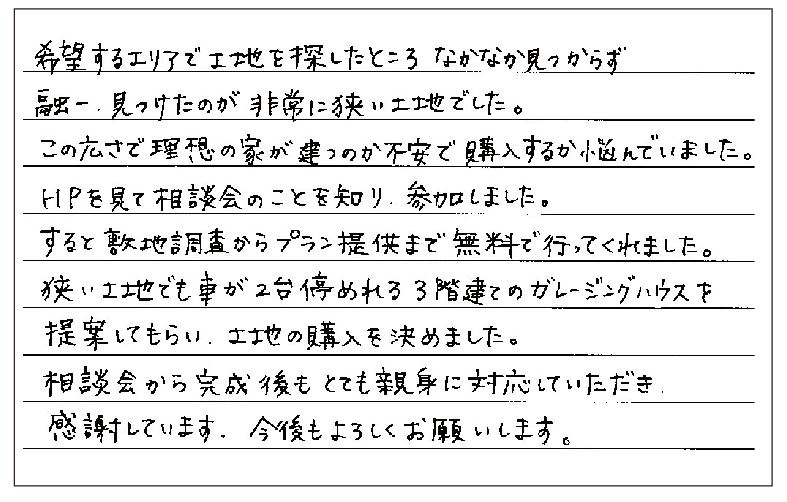 希望するエリアで土地を探したところ なかなか見つからず
融一、見つけたのが 非常に狭い土地でした。
この広さで理想の家が建つのか不安で購入するか悩んでいました。
HPを見て相談会のことを知り、参加しました。
すると敷地調査からプラン提供まで無料で行ってくれました。
狭い土地でも車が2台停めれる3階建てのガレージングハウスを
提案してもらい、土地の購入を決めました。
相談会から完成後もとても親身に対応していただき、
感謝しています。今後もよろしくお願いします。